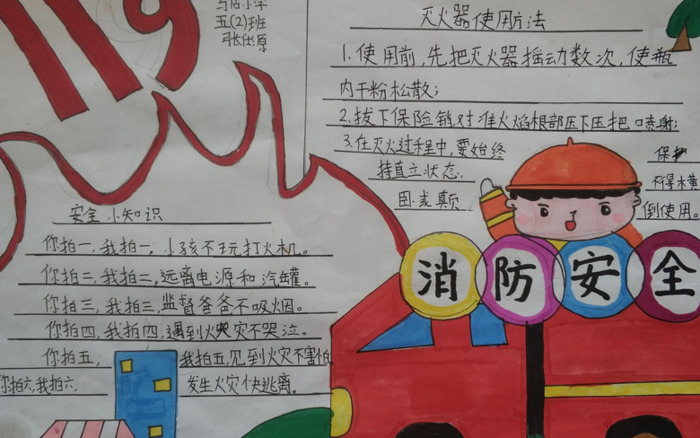 119
五(2)班
灭火器使用方法
1.使用前,先把灭火器摇动数次,使瓶
内干粉松散;
2.拔下保险销对准火焰根部压下压把喷射;
3.在灭火过程中,要始终 保
持直立状态, 不得横
卧或颠 倒使用。
安全小知识
你拍一,我拍一,小孩不玩打火机。
你拍二,我拍二,远离电源和汽罐。
你拍三,我拍三,监督爸爸不吸烟。
你拍四,我拍四,遇到火灾不哭泣。
你拍五, 我拍五,见到火灾不害怕
你拍六,我拍六, 发生火灾快逃离。
消防安全